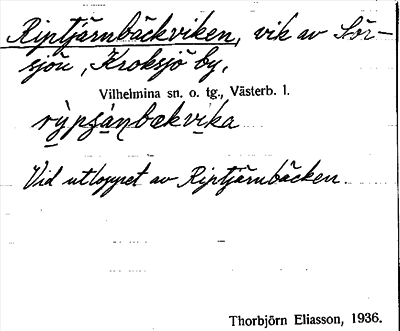 Riptjärnbäckviken, vik av Sör-
sjön, Kroksjö by,
Vilhelmina sn. o. tg., Västerb. l.
Vid utloppet av Riptjärnbäcken.
Thorbjörn Eliasson, 1936.